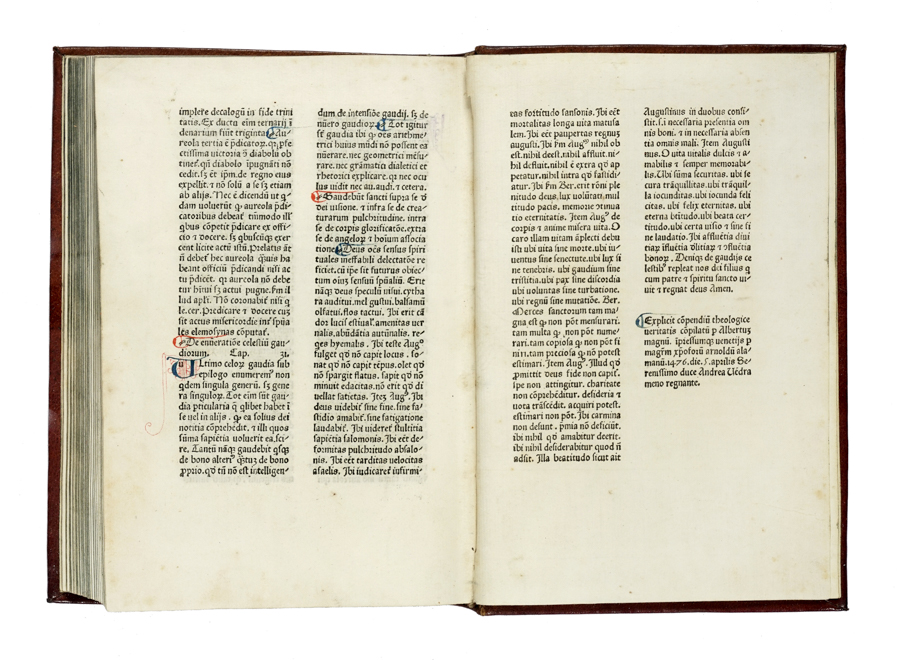 implere decalogū in fide trini
tatis. Ex ductu eim ternarij ī
denarium fiūt triginta Au⸗
reola tertia ē p̄dicatoꝝ. qꝛ ꝑfe
ctissima victoria ē diabolū ob
tineꝛ̄. qn̄ diabolū īpugnāti nō
cedit. sꝫ et ip̄m. de regno eius
expellit. ⁊ nō solū a se sꝫ etiam
ab alijs. Nec ē dicēdū ut ꝗ⸗
dam voluerūt ꝙ aureola p̄di⸗
catoribus debeat̄ tm̄modo ill'
ꝗbus cōpetit p̄dicare ex offi⸗
cio ⁊ docere. sꝫ ꝗbuscūqꝫ exer
cent licite actū istū. Prelatis āt
nō debet̄ hec aureola ꝙuis ha
beant officiū p̄dicandi nisi ac
tu p̄dicēt. qꝛ aureola nō debe
tur hīni sꝫ actui pugne. fm̄ il
lud apl'i. Nō coronabit̄ nisi q̇
le. cer. Predicare ⁊ docere cuꝫ
sit actus misericordie int̄ spūa
les elemosynas cōputat̄.
De enūeratiōe celestiū gau⸗
diorum. Cap. 31.
Ultimo celoꝝ gaudia sub
epilogo enumerem⁹ non
ꝗdem singula generū. sꝫ gene
ra singuloꝝ. Tot eim sūt gau⸗
dia pticularia q̄ qlibet habet ī
se vel in alijs. ꝙ ea solius dei
notitia cōprehēdit. ⁊ illi quos
sūma sapiētia voluerit ea. sci⸗
re. Tantū nāqꝫ gaudebit qsqꝫ
de bono alteri⁹ q̄tuꝫ de bono
ꝓprio. qd̄ tn̄ nō est intelligen⸗
dum de intensiōe gaudij. sꝫ de
nūero gaudioꝝ. Tot igitur
sūt gaudia ibi ꝙ oēs arithme⸗
trici huius mūdi nō possent ea
nūerare. nec geometrici mēsu⸗
rare. nec grāmatici dialetici et
rhetorici explicare. qꝛ nec ocu
lus uidit nec au. audi. ⁊ cetera.
Gaudebūt sancti supra se d̄
dei visione. ⁊ infra se de crea⸗
turarum pulchritudine. intra
se de corpis glorificatōe. extra
se de angeloꝝ ⁊ hoīum associa
tione. Deus oēs sensus spiri
tuales ineffabili delectatōe re
ficiet. cū ip̄e sit futurus obiec⸗
tum oīuꝫ sensuū spūaliū. Erit
nāqꝫ deus speculū visui. cytha
ra auditui. mel gustui. balsamū
olfatui. flos tactui. Ibi erit cā
dor lucis estiual'. amenitas ver
nalis. abūdātia autūnalis. re⸗
ges hyemalis. Ibi teste Aug⁹
fulget qd̄ nō capit locus. so⸗
nat qd̄ nō capit tēpus. olet qd̄
nō spargit flatus. sapit qd̄ nō
minuit edacitas. nō erit qd̄ di
uellat satietas. Iteꝫ Aug⁹. Ibi
deus uidebit̄ sine fine. sine fa⸗
stidio amabit̄. sine fatigatione
laudabit̄. Ibi uideret̄ stultitia
sapiētia salomonis. Ibi eēt de⸗
formitas pulchritudo absalo⸗
nis. Ibi eēt tarditas velocitas
asaelis. Ibi iudicaret̄ infirmi⸗
tas fortitudo sansonis. Ibi eēt
mortalitas longa uita matusa
lem. Ibi eēt paupertas regnuꝫ
augusti. Ibi fm̄ Aug⁹ nihil ob
est. nihil deest. nihil affluit. ni⸗
hil defluit. nihil ē extra qd̄ ap
petatur. nihil intra qd̄ fastidi⸗
atur. Ibi fm̄ Ber. erit rōni ple
nitudo deus. lux uolūtati. mul
titudo pacis. memorie ⁊tinua
tio eternitatis. Item Aug⁹ de
corpis ⁊ anime misera uita. O
caro illam uitam āplecti debu
isti ubi uita sine morte. ubi iu⸗
uentus sine senectute. ubi lux si
ne tenebris. ubi gaudium sine
tristitia. ubi pax sine discordia
ubi voluntas sine turbatione.
ubi regnū sine mutatiōe. Ber.
Merces sanctorum tam ma⸗
gna est ꝙ nō pōt mensurari.
tam multa ꝙ non pōt nume⸗
rari. tam copiosa ꝙ non pōt fi
niri. tam preciosa ꝙ nō potest
estimari. Item Aug⁹. Illud qd̄
ꝓmittit deus fide non capit̄.
spe non attingitur. charitate
non cōprehēditur. desideria ⁊
uota trāscēdit. acquiri potest.
estimari non pōt. Ibi carmina
non desunt. p̄mia nō deficiūt.
ibi nihil qd̄ amabitur deerit.
ibi nihil desiderabitur quod nō
adsit. Illa beatitudo sicut ait
Augustinus in duobus consi⸗
stit. s. i necessaria presentia om
nis boni. ⁊ in necessaria absen
tia omnis mali. Item Augusti
nus. O uita uitalis dulcis ⁊ a⸗
mabilis ⁊ semper memorabi⸗
lis. Ubi sūma securitas. ubi se
cura trāquillitas. ubi trāquil⸗
la iocunditas. ubi iocunda feli
citas. ubi felix eternitas. ubi
eterna btitudo. ubi beata cer⸗
titudo. ubi certa visio ⁊ sine fi
ne laudatio. Ibi affluētia diui
tiaꝝ īfluētia dlitiaꝝ ⁊ ꝯfluētia
bonoꝝ. Deniqꝫ de gaudijs ce
lestib⁹ repleat nos dei filius q̇
cum patre ⁊ spiritu sancto ui⸗
uit ⁊ regnat deus Amen.
Explicit cōpendiū theologice
ueritatis cōpilatū ꝑ Albertuꝫ
magnū. īpressumqꝫ venetijs ꝑ
magr̄m xp̄oforū arnoldū ala⸗
manū. 1476. die. 5. aprilis Se⸗
renissimo duce Andrea Vēdra
meno regnante.